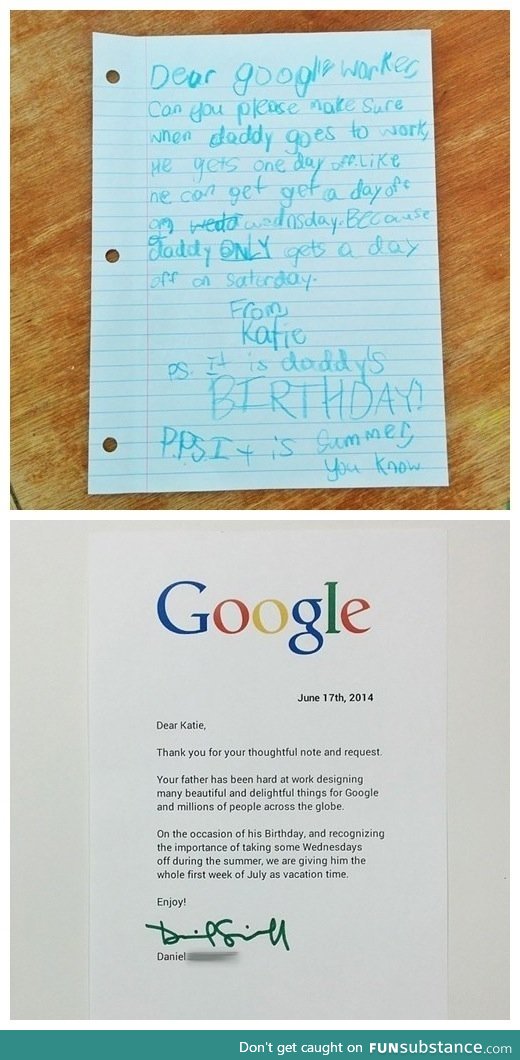 Dear google worker,
Can you please make sure
when daddy goes to work,
He gets one day off. Like
he can get get a day off
on wednsday. Because
daddy ONLY gets a day
off on saturday.
From,
Katie
PS. It is daddy's
BIRTHDAY!
P.PS. It is summer,
you know
Google
June 17th, 2014
Dear Katie,
Thank you for your thoughtful note and request.
Your father has been hard at work designing
many beautiful and delightful things for Google
and millions of people across the globe.
On the occasion of his Birthday, and recognizing
the importance of taking some Wednesdays
off during the summer, we are giving him the
whole first week of July as vacation time.
Enjoy!
Daniel
Don't get caught on FUNsubstance.com